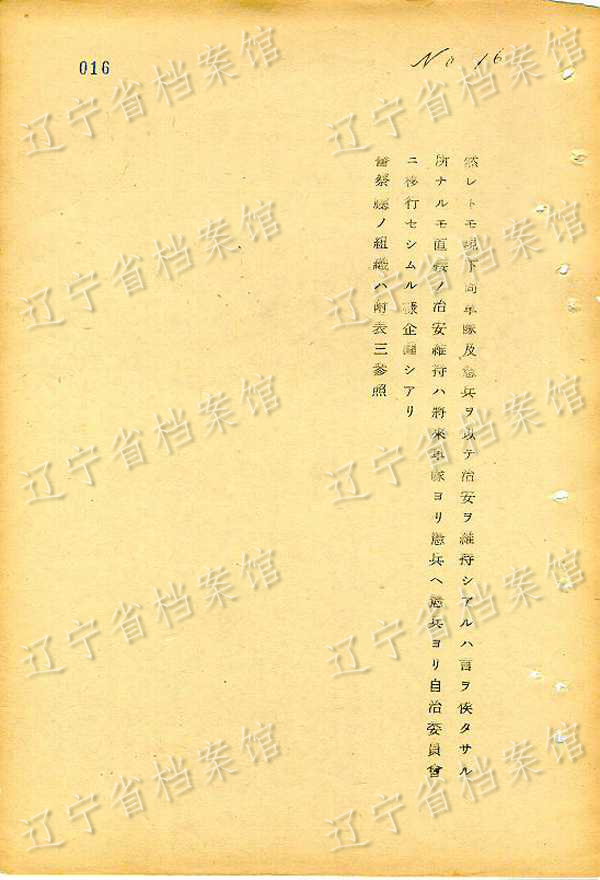 016
No 16
然レトモ現下尚軍隊及憲兵ヲ以テ治安ヲ維持シアルハ言ヲ俟タサル
所ナルモ直接ノ治安維持ハ將來軍隊ヨリ憲兵ヘ憲兵ヨリ自治委員會
ニ移行セシムル様企圖シアリ
警察廳ノ組織ハ附表三參照
辽宁省档案馆
辽宁省档案馆
辽宁省档案馆
辽宁省档案馆
辽宁省档案馆
辽宁省档案馆
辽宁省档案馆
辽宁省档案馆
辽宁省档案馆
辽宁省档案馆